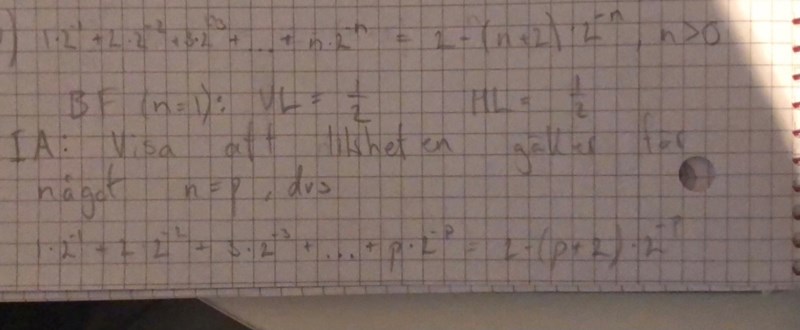 ) 1·2⁻¹ + 2·2⁻² + 3·2⁻³ + ... + n·2⁻ⁿ = 2 - (n+2)·2⁻ⁿ, n>0
BF (n=1): VL = 1/2 HL = 1/2
IA: Visa att likheten gäller för
något n=p, dvs
1·2⁻¹ + 2·2⁻² + 3·2⁻³ + ... + p·2⁻ᵖ = 2-(p+2)·2⁻ᵖ